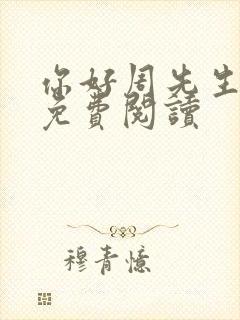 你好周先生
免費閱讀
穆青憶